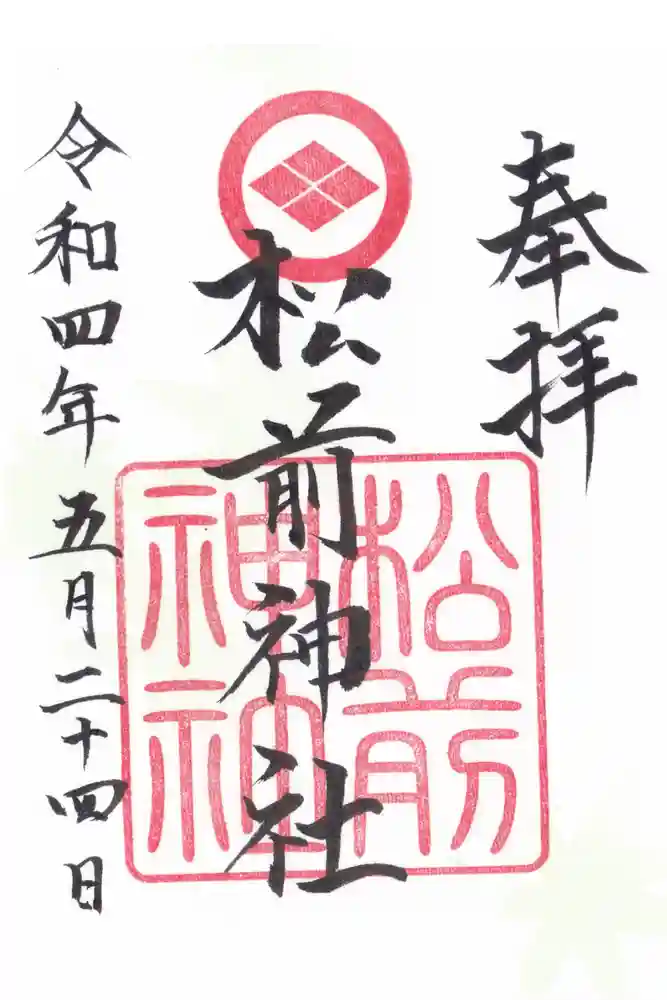 奉拝
松前神社
令和四年五月二十四日
松前
神